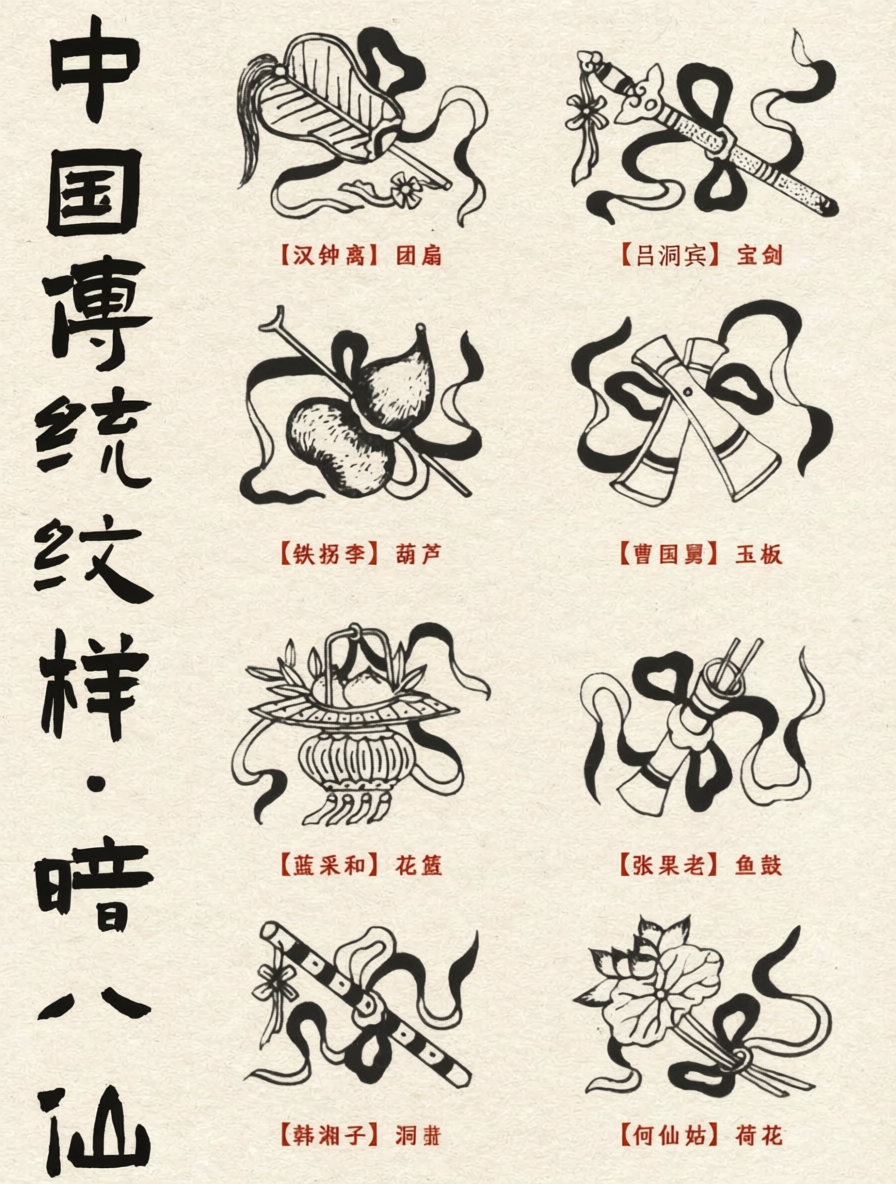 中国傳统纹样·暗八仙
【汉钟离】团扇
【吕洞宾】宝剑
【铁拐李】葫芦
【曹国舅】玉板
【蓝采和】花篮
【张果老】鱼鼓
【韩湘子】洞
【何仙姑】荷花